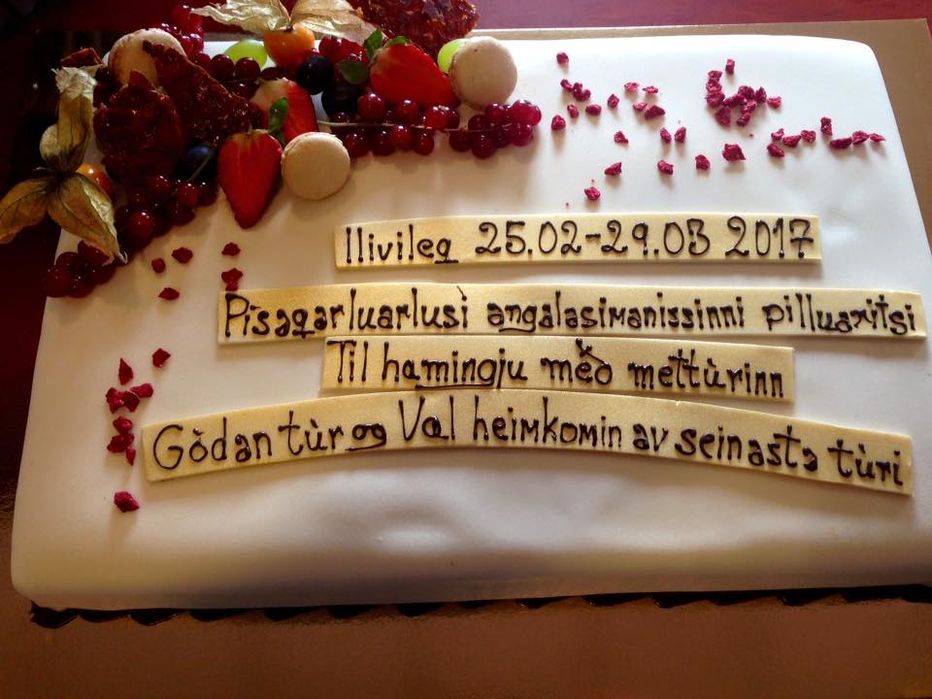 Ilivileq 25.02-29.03 2017
Pisaqarluarlusi angalasimanissinni pilluaritsi
Til hamingju með mettùrinn
Gòdan tùr og Val heimkomin av seinasta tùri